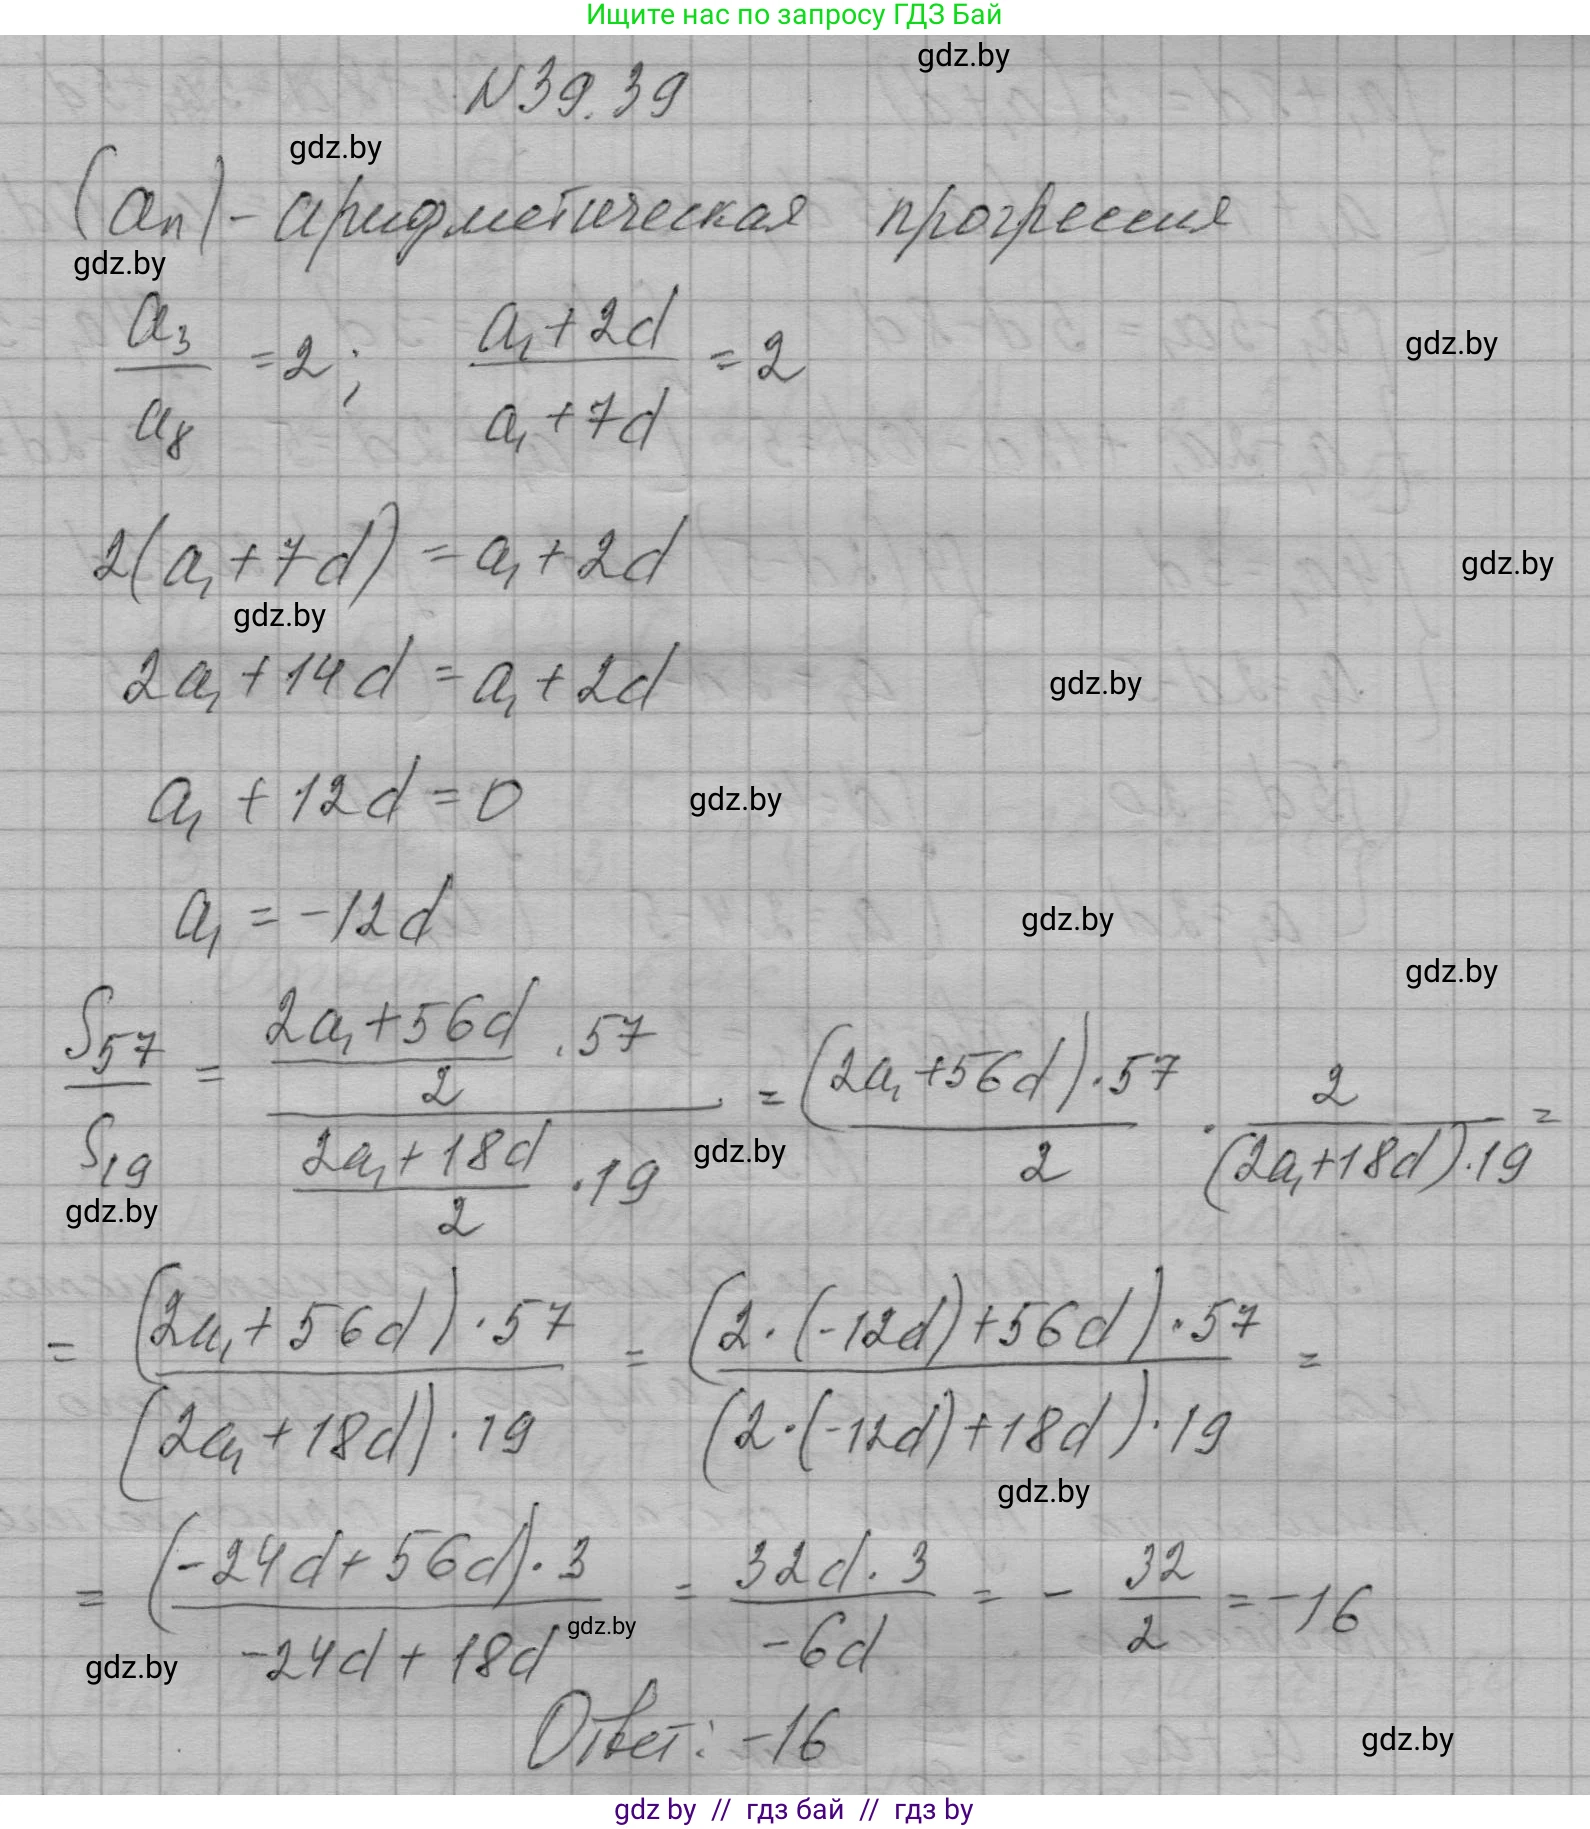 Ищите нас по запросу ГДЗ Бай
gdz.by
N39.39
gdz.by
(aₙ) - арифметическая прогрессия
gdz.by
a₃/a₈ = 2; (a₁ + 2d)/(a₁ + 7d) = 2
gdz.by
2(a₁ + 7d) = a₁ + 2d
gdz.by
gdz.by
2a₁ + 14d = a₁ + 2d
gdz.by
a₁ + 12d = 0
gdz.by
a₁ = -12d
gdz.by
gdz.by
S₅₇/S₁₉ = ((2a₁ + 56d)/2 · 57)/((2a₁ + 18d)/2 · 19) = ((2a₁ + 56d) · 57)/2 · 2/((2a₁ + 18d) · 19) =
gdz.by
gdz.by
= ((2a₁ + 56d) · 57)/((2a₁ + 18d) · 19) = ((2 · (-12d) + 56d) · 57)/((2 · (-12d) + 18d) · 19) =
gdz.by
= ((-24d + 56d) · 3)/(-24d + 18d) = (32d · 3)/(-6d) = - 32/2 = -16
gdz.by
gdz.by
Ответ: -16
gdz.by
gdz by // гдз бай // гдз by